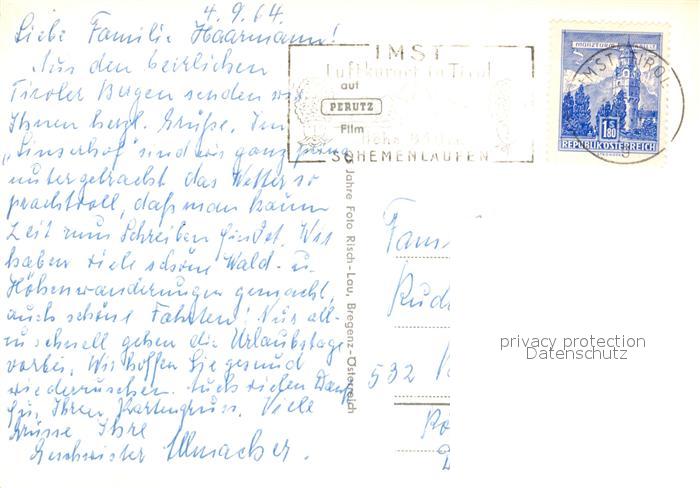 4.9.64.
Liebe Familie Haarmann!
Aus den herrlichen
Tiroler Bergen senden wir
Ihnen herzl. Grüße. Im
„Linserhof" sind wir ganz prima
untergebracht das Wetter so
prachtvoll, daß man kaum
Zeit zum Schreiben findet. Wir
haben viele schöne Wald- u.
Höhenwanderungen gemacht,
auch schöne Fahrten! Nur all-
zu schnell gehen die Urlaubstage
vorbei. Wir hoffen Sie gesund
wiederzusehen. Auch vielen Dank
für Ihren Kartengruss. Viele
Grüsse Ihre
Geschwister
IMST
Luftkurort in Tirol
auf
PERUTZ
Film
SCHEMENLAUFEN
IMST TIROL
MÜNZTURM HALL I.T.
S 1.80
REPUBLIK ÖSTERREICH
Jahre Foto Risch-Lau, Bregenz-Österreich
Fam
Rud
532
privacy protection
Datenschutz